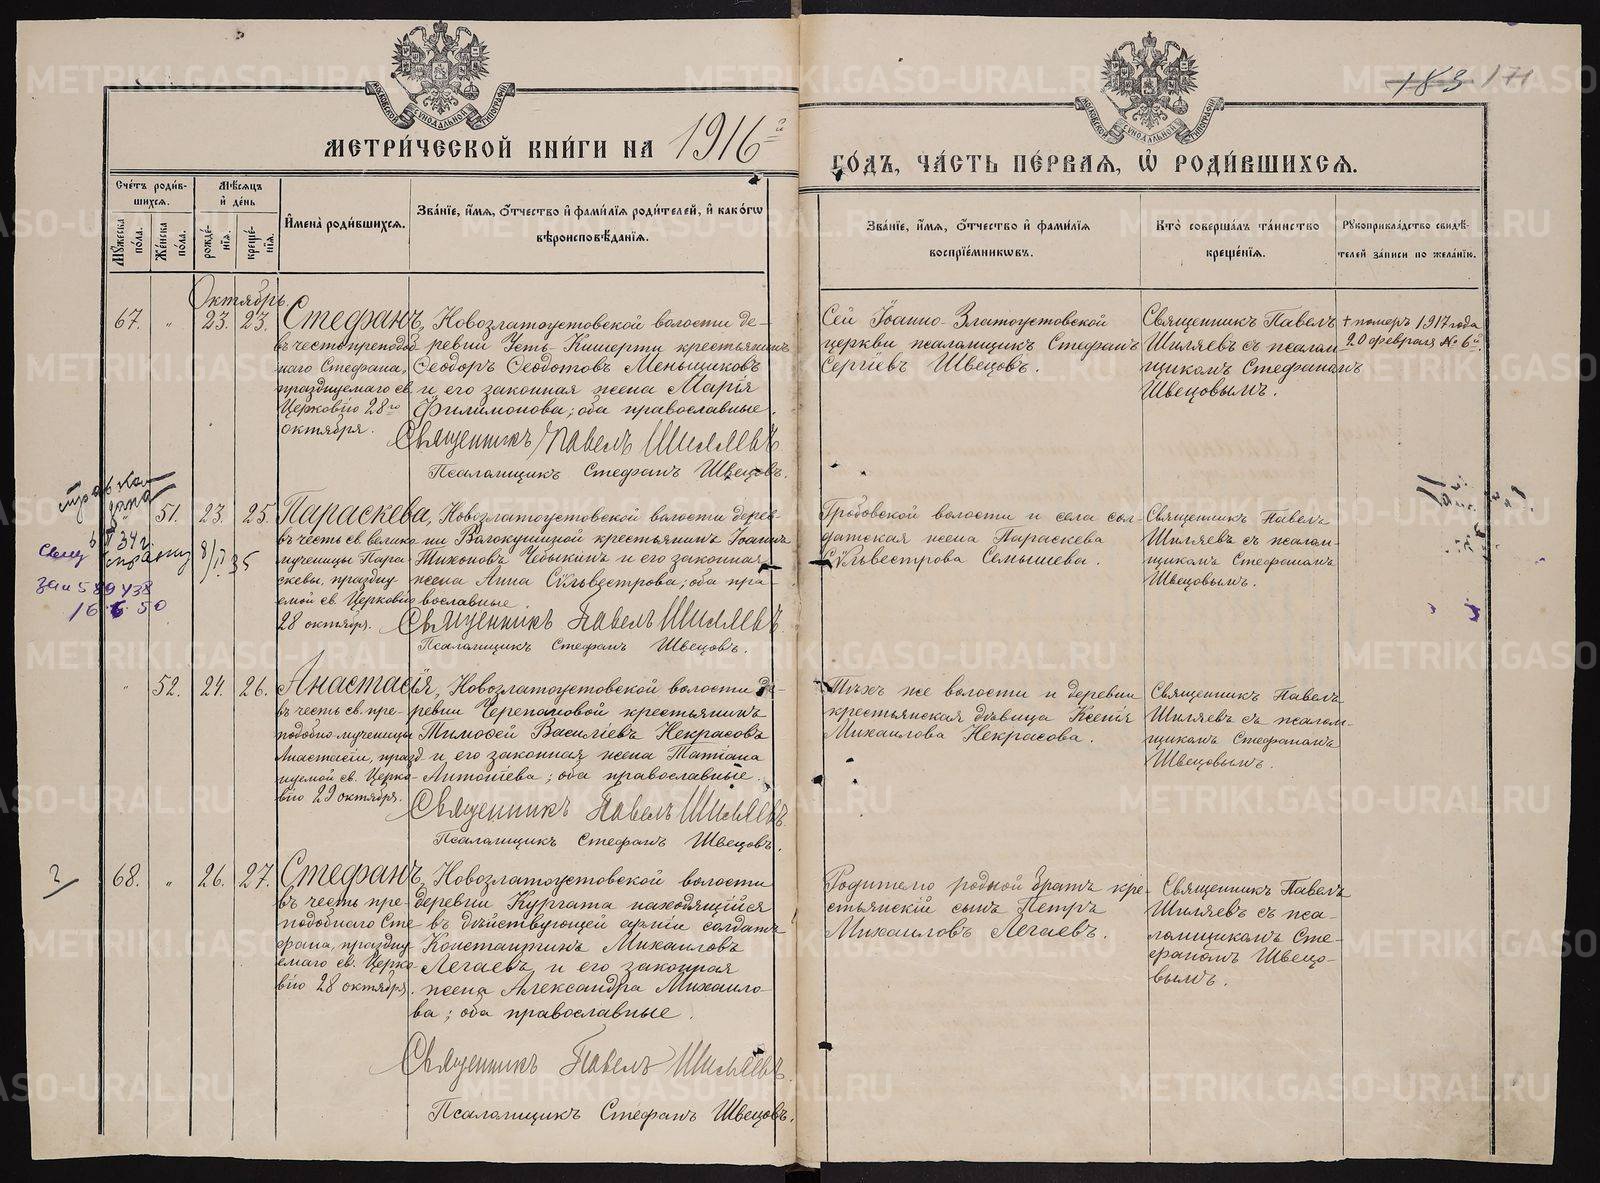 МЕТРИ́ЧЕСКОЙ КНИ́ГИ НА 1916й
ГО́ДЪ, ЧА́СТЬ ПЕ́РВАЯ, Ѿ РОДИ́ВШИХСЯ.
183 171
МОСКОВСКОЙ СѴНОДАЛЬНОЙ ТИПОГРАФІИ
МОСКОВСКОЙ СѴНОДАЛЬНОЙ ТИПОГРАФІИ
Сче́тъ роди́в-
шихся.
Мꙋ́жеска пола.
Же́нска пола.
Мѣ́сяцъ
и де́нь
рожде́-
нія.
креще́-
нія.
Имена̀ роди́вшихся.
Зва́ніе, и́мя, ѻ́тчество и фами́лія роди́телей, и како́гѡ
вѣроисповѣ́данія.
Зва́ніе, и́мя, ѻ́тчество и фами́лія
воспріе́мникѡвъ.
Кто̀ соверша́лъ та́инство
креще́нія.
Рꙋкоприкла́дство свидѣ́-
телей за́писи по жела́нію.
Октябрь.
67. " 23. 23.
Стефанъ,
въ честь преподоб
наго Стефана,
празднуемаго св.
Церковію 28го
октября.
Новозлатоустовской волости де-
ревни Усть-Кишерти крестьянинъ
Ѳеодоръ Ѳеодотовъ Меньщиковъ
и его законная жена Марія
Филимонова; оба православные.
Священникъ Павелъ Шиляевъ
Псаломщикъ Стефанъ Швецовъ.
Сей Іоанно-Златоустовской
церкви псаломщикъ Стефанъ
Сергіевъ Швецовъ.
Священникъ Павелъ
Шиляевъ съ псалом-
щикомъ Стефаномъ
Швецовымъ.
+ померъ 1917 года
20 февраля № 6й.
51. 23. 25.
Параскева,
въ честь св. велико
мученицы Пара-
скевы, праздну
емой св. Церковію
28 октября.
Новозлатоустовской волости дерев-
ни Волокушиной крестьянинъ Іоаннъ
Тихоновъ Чебыкинъ и его законная
жена Анна Сѵльвестрова; оба пра-
вославные.
Священникъ Павелъ Шиляевъ
Псаломщикъ Стефанъ Швецовъ.
Гробовской волости и села сол-
датская жена Параскева
Сѵльвестрова Семышева.
Священникъ Павелъ
Шиляевъ съ псалом-
щикомъ Стефаномъ
Швецовымъ.
дана
34 г.
справку 8/II 35
589438
16 6 50
" 52. 24. 26.
Анастасія,
въ честь св. пре-
подобно мученицы
Анастасіи, празд-
нуемой св. Церко-
вію 29 октября.
Новозлатоустовской волости де-
ревни Черепановой крестьянинъ
Тимоѳей Васильевъ Некрасовъ
и его законная жена Татіана
Антоніева; оба православные.
Священникъ Павелъ Шиляевъ
Псаломщикъ Стефанъ Швецовъ.
Тѣхъ же волости и деревни
крестьянская дѣвица Ксенія
Михаилова Некрасова.
Священникъ Павелъ
Шиляевъ съ псалом-
щикомъ Стефаномъ
Швецовымъ.
68. " 26. 27.
Стефанъ,
въ честь пре-
подобнаго Сте
фана, праздну
емаго св. Церко-
вію 28 октября.
Новозлатоустовской волости
деревни Кургата находящійся
въ дѣйствующей арміи солдатъ
Константинъ Михаиловъ
Легаевъ и его законная
жена Александра Михаило-
ва; оба православные.
Священникъ Павелъ Шиляевъ
Псаломщикъ Стефанъ Швецовъ.
Родителю родной братъ кре-
стьянскій сынъ Петръ
Михаиловъ Легаевъ.
Священникъ Павелъ
Шиляевъ съ пса-
ломщикомъ Сте-
фаномъ Швецо-
вымъ.
METRIKI.GASO-URAL.RU